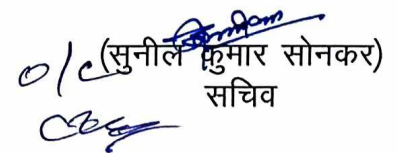 o/c (सुनील कुमार सोनकर)
सचिव